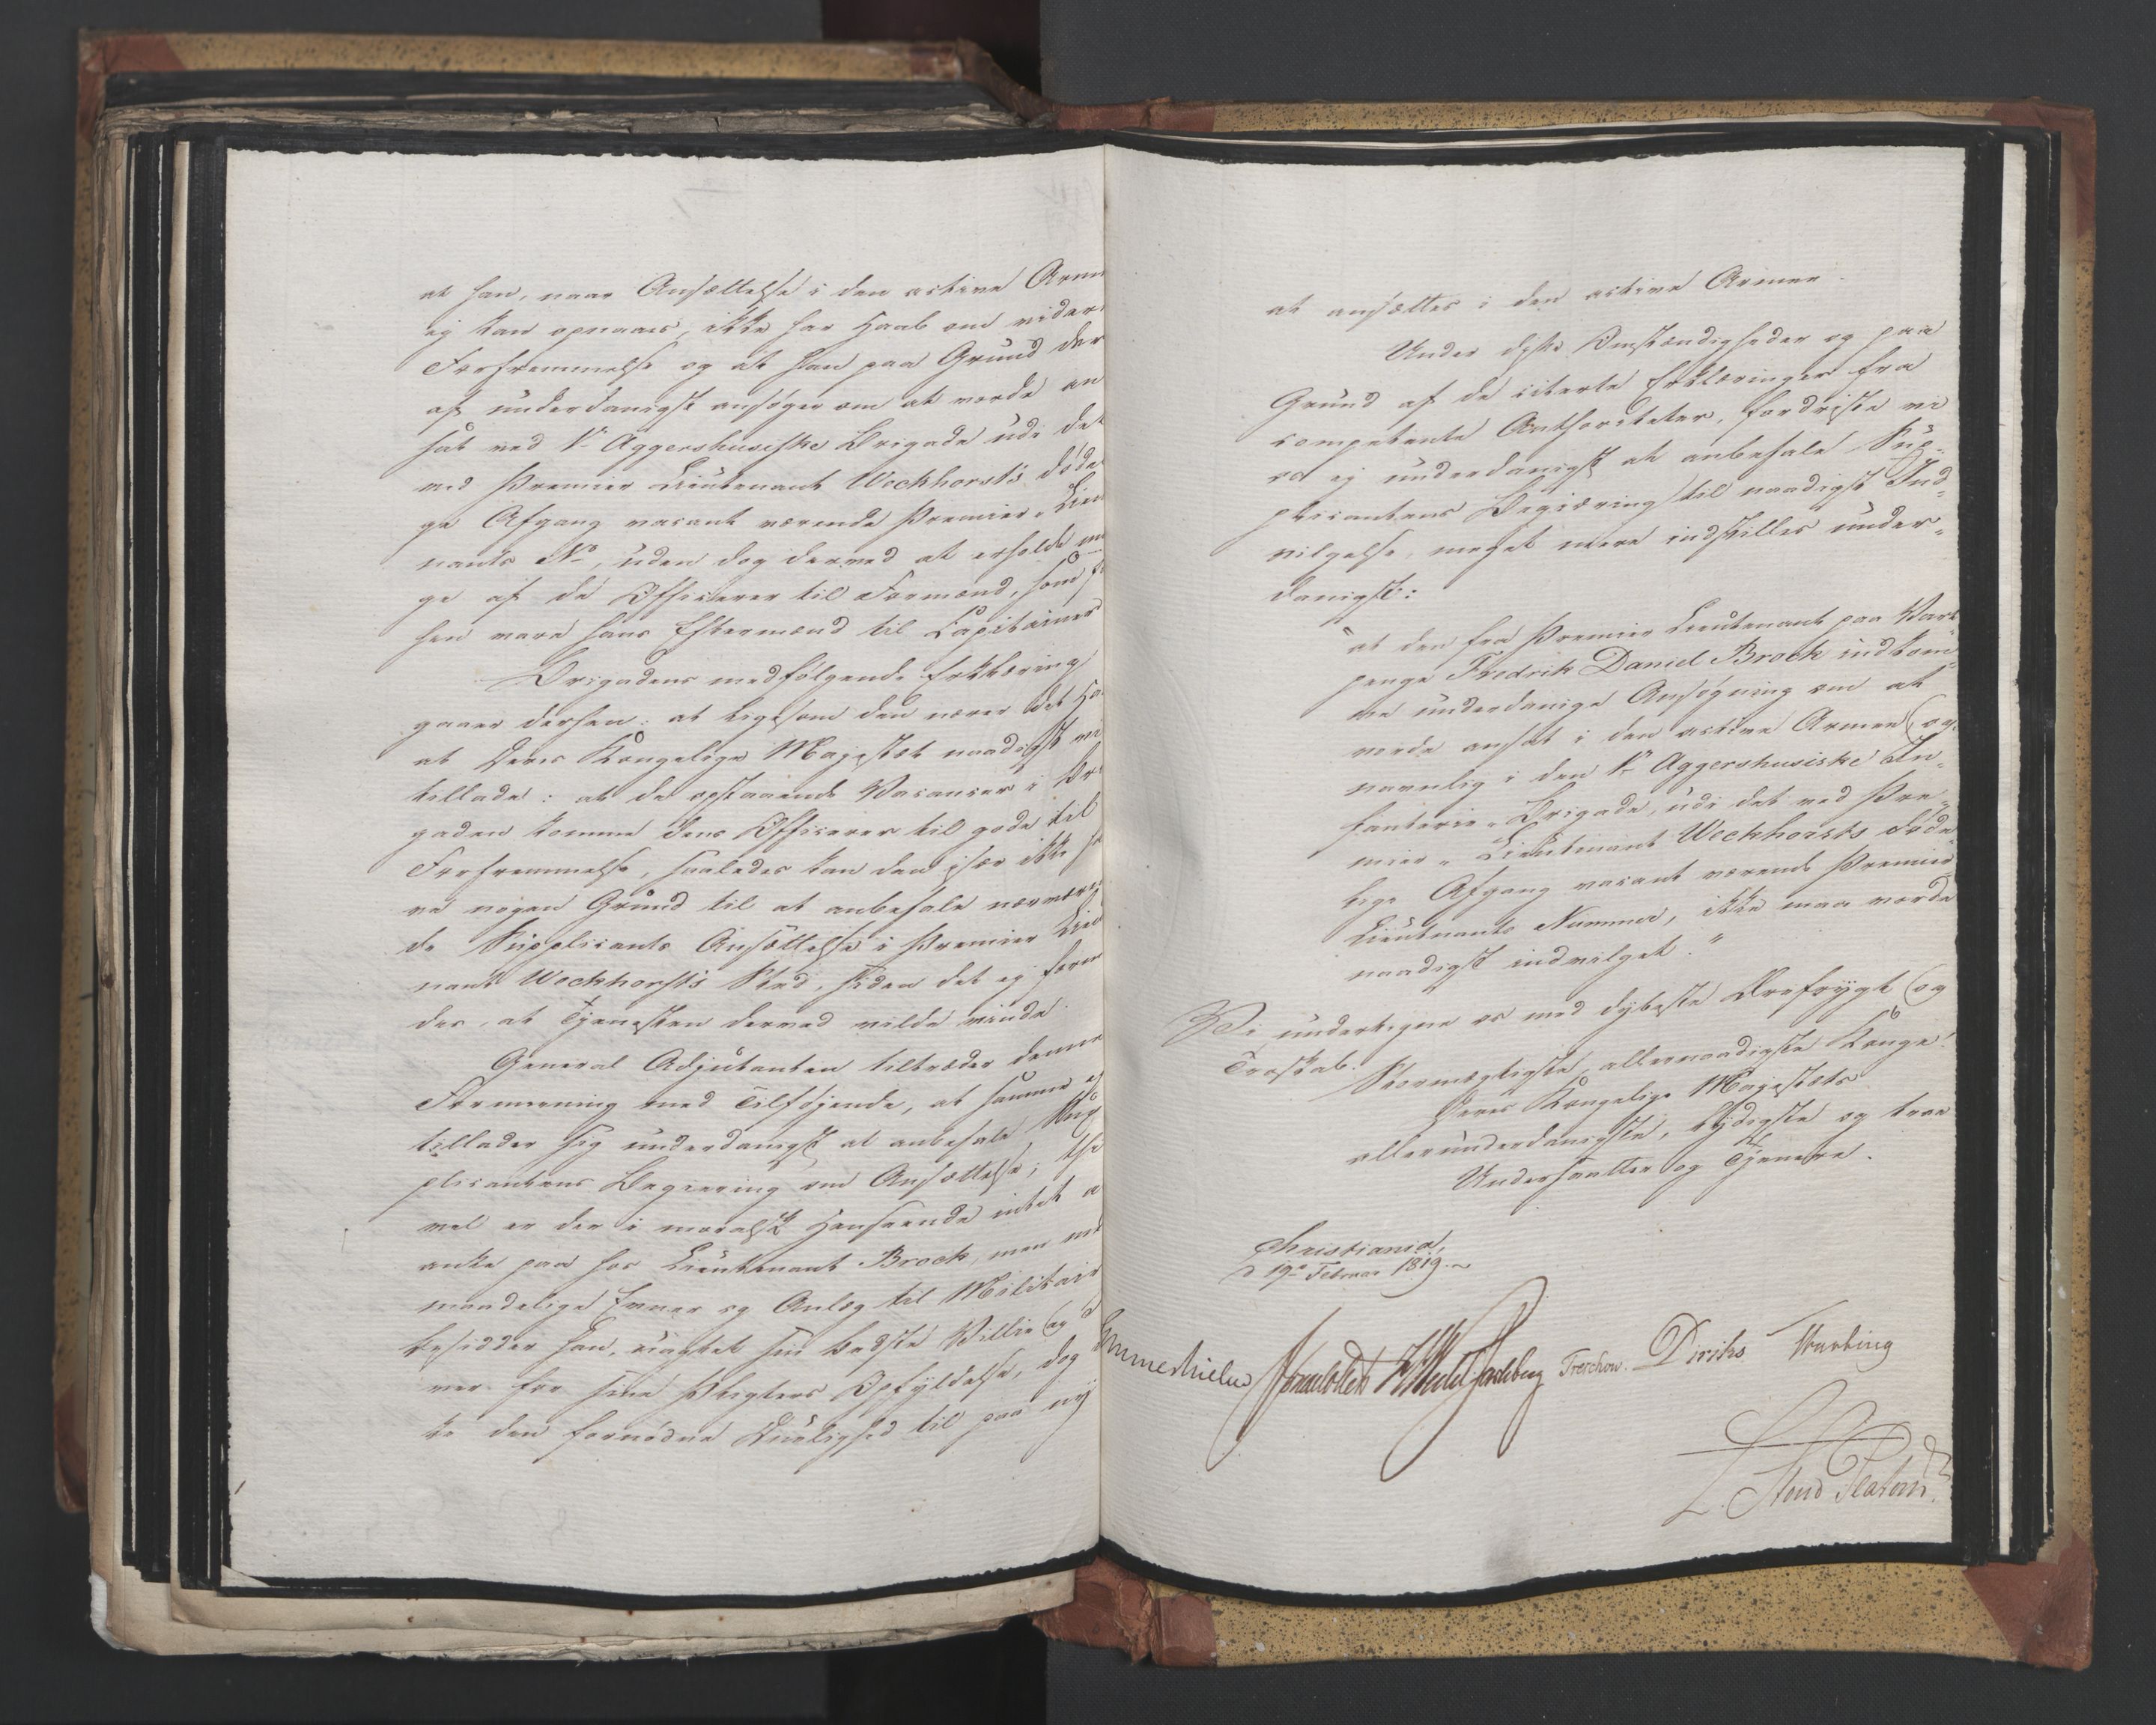 at han, naar Ansættelse i den active Arm
ej kan opnaaes, ikke har Haab om vider
Forfremmelse og at han paa Grund der
af underdanigst ansøger om at vorde an
sat ved 1ste Aggershusiske Brigade udi det
ved Premier Lieutenant Weckhorsts døde
ge Afgang vacant værende Premier-Lieu
nants No, uden dog derved at erholde no
ge af de Officierer til Formænd, som
hen vare hans Eftermænd til Capitainer
Brigadens medfølgende Erklæring
gaaer derhen: at ligesom den nærer det Ha
at Deres Kongelige Majestæt naadigst vi
tillade: at de opstaaende Vacancer i Bri
gaden komme dens Officierer til gode til
Forfremmelse, saaledes kan den især ikke ha
ve nogen Grund til at anbefale nærværen
de Supplicants Ansættelse i Premier Lieu
nant Weckhorsts Sted, siden det ej formo
des, at Tjenesten derved vilde vinde
General Adjutanten tiltræder denne
Formening med Tilføjende, at samme ej
tillader sig underdanigst at anbefale Sup
plicantens Begiering om Ansættelse; thi
vel er der i moralsk Henseende intet a
anke paa hos Lieutenant Brock, men med
maadelige Evner og Anlæg til Militair
besidder han, uagtet sin bedste Villie og
ver for sine Pligters Opfyldelse, dog
ke den fornødne Duelighed til paa ny
at ansættes i den active Armee.
Under disse Omstændigheder og paa
Grund af de citerte Erklæringer fra
competente Authoriteter, fordriste vi
os ej underdanigst at anbefale Sup-
plicantens Begiæring til naadigst Ind-
vilgelse, meget mere indstilles under-
danigst:
"at den fra Premier Lieutenant paa Vart-
penge Fredrik Daniel Brock indkom-
ne underdanige Ansøgning om at
vorde ansat i den active Armee og
navnlig i den 1ste Aggershusiske In-
fanterie-Brigade, udi det ved Pre-
mier-Lieutenant Weckhorsts døde-
lige Afgang vacant værende Premier-
Lieutnants Nummer, ikke maa vorde
naadigst indvilget."
Vi undertegne os med dybeste Ærefrygt og
Troskab.
Stormægtigste, allernaadigste Konge!
Deres Kongelige Majestæts
allerunderdanigste, lydigste og troe
Undersaatter og Tjenere.
Christiania,
d 19de Februar 1819.
Sommerhielm Wedel Jarlsberg Treschow. Diriks
L. Stoud Platou